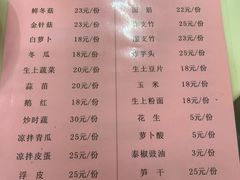 鲜冬菇 23元/份
金针菇 23元/份
白萝卜 18元/份
冬瓜 18元/份
生土蔬菜 20元/份
蒜苗 20元/份
鹅红 18元/份
炒时蔬 30元/份
凉拌青瓜 25元/份
凉拌皮蛋 25元/份
浮皮 25元/份
面筋 22元/份
支竹 25元/份
芋头 25元/份
生土豆片 18元/份
玉米 18元/份
生土粉面 18元/份
花生 5元/份
萝卜酸 5元/份
泰椒豉油 3元/份
笋干 25元/份